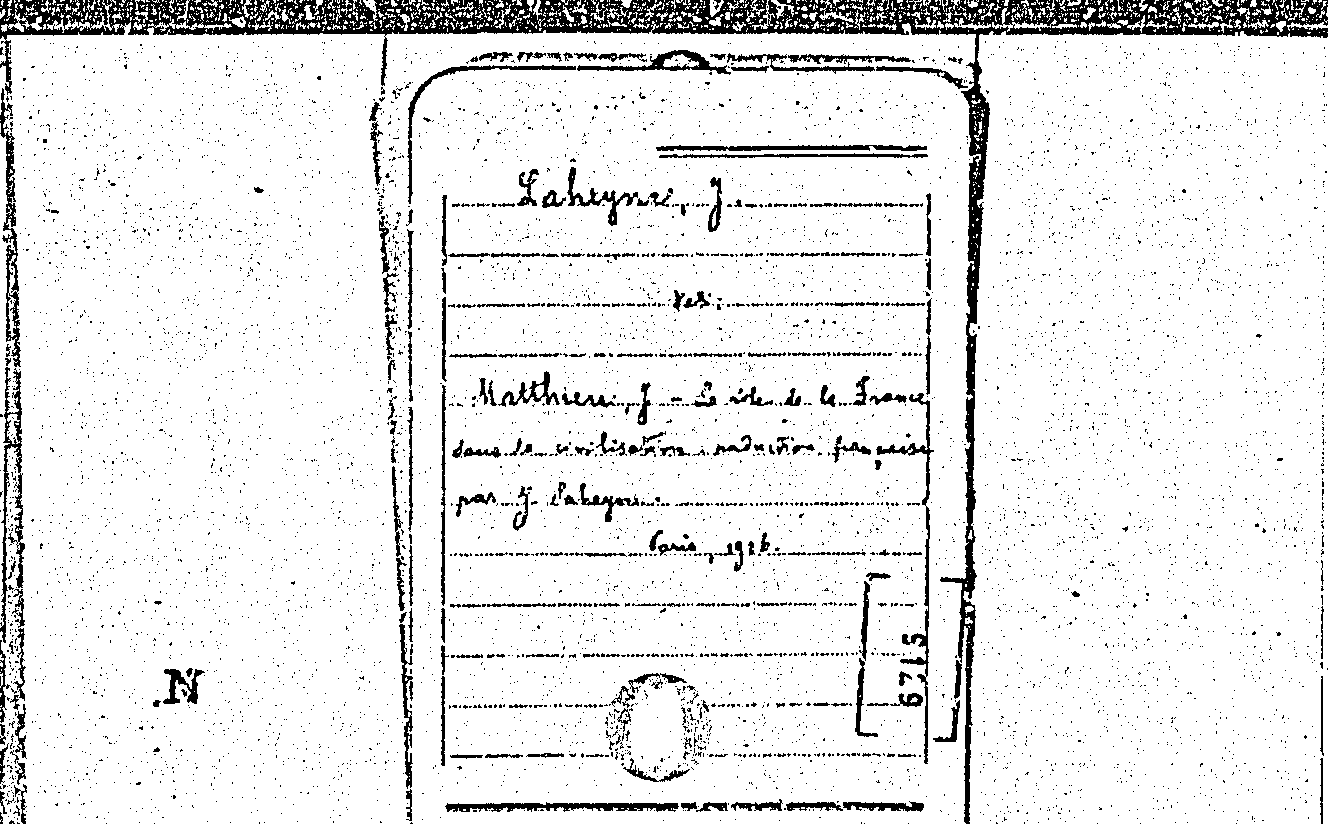 Laheyne, J.
Ver:
Matthieu, J - Le rôle de la France
dans la civilisation. traduction française
par J. Laheyne.
Paris, 1926.
6715
N